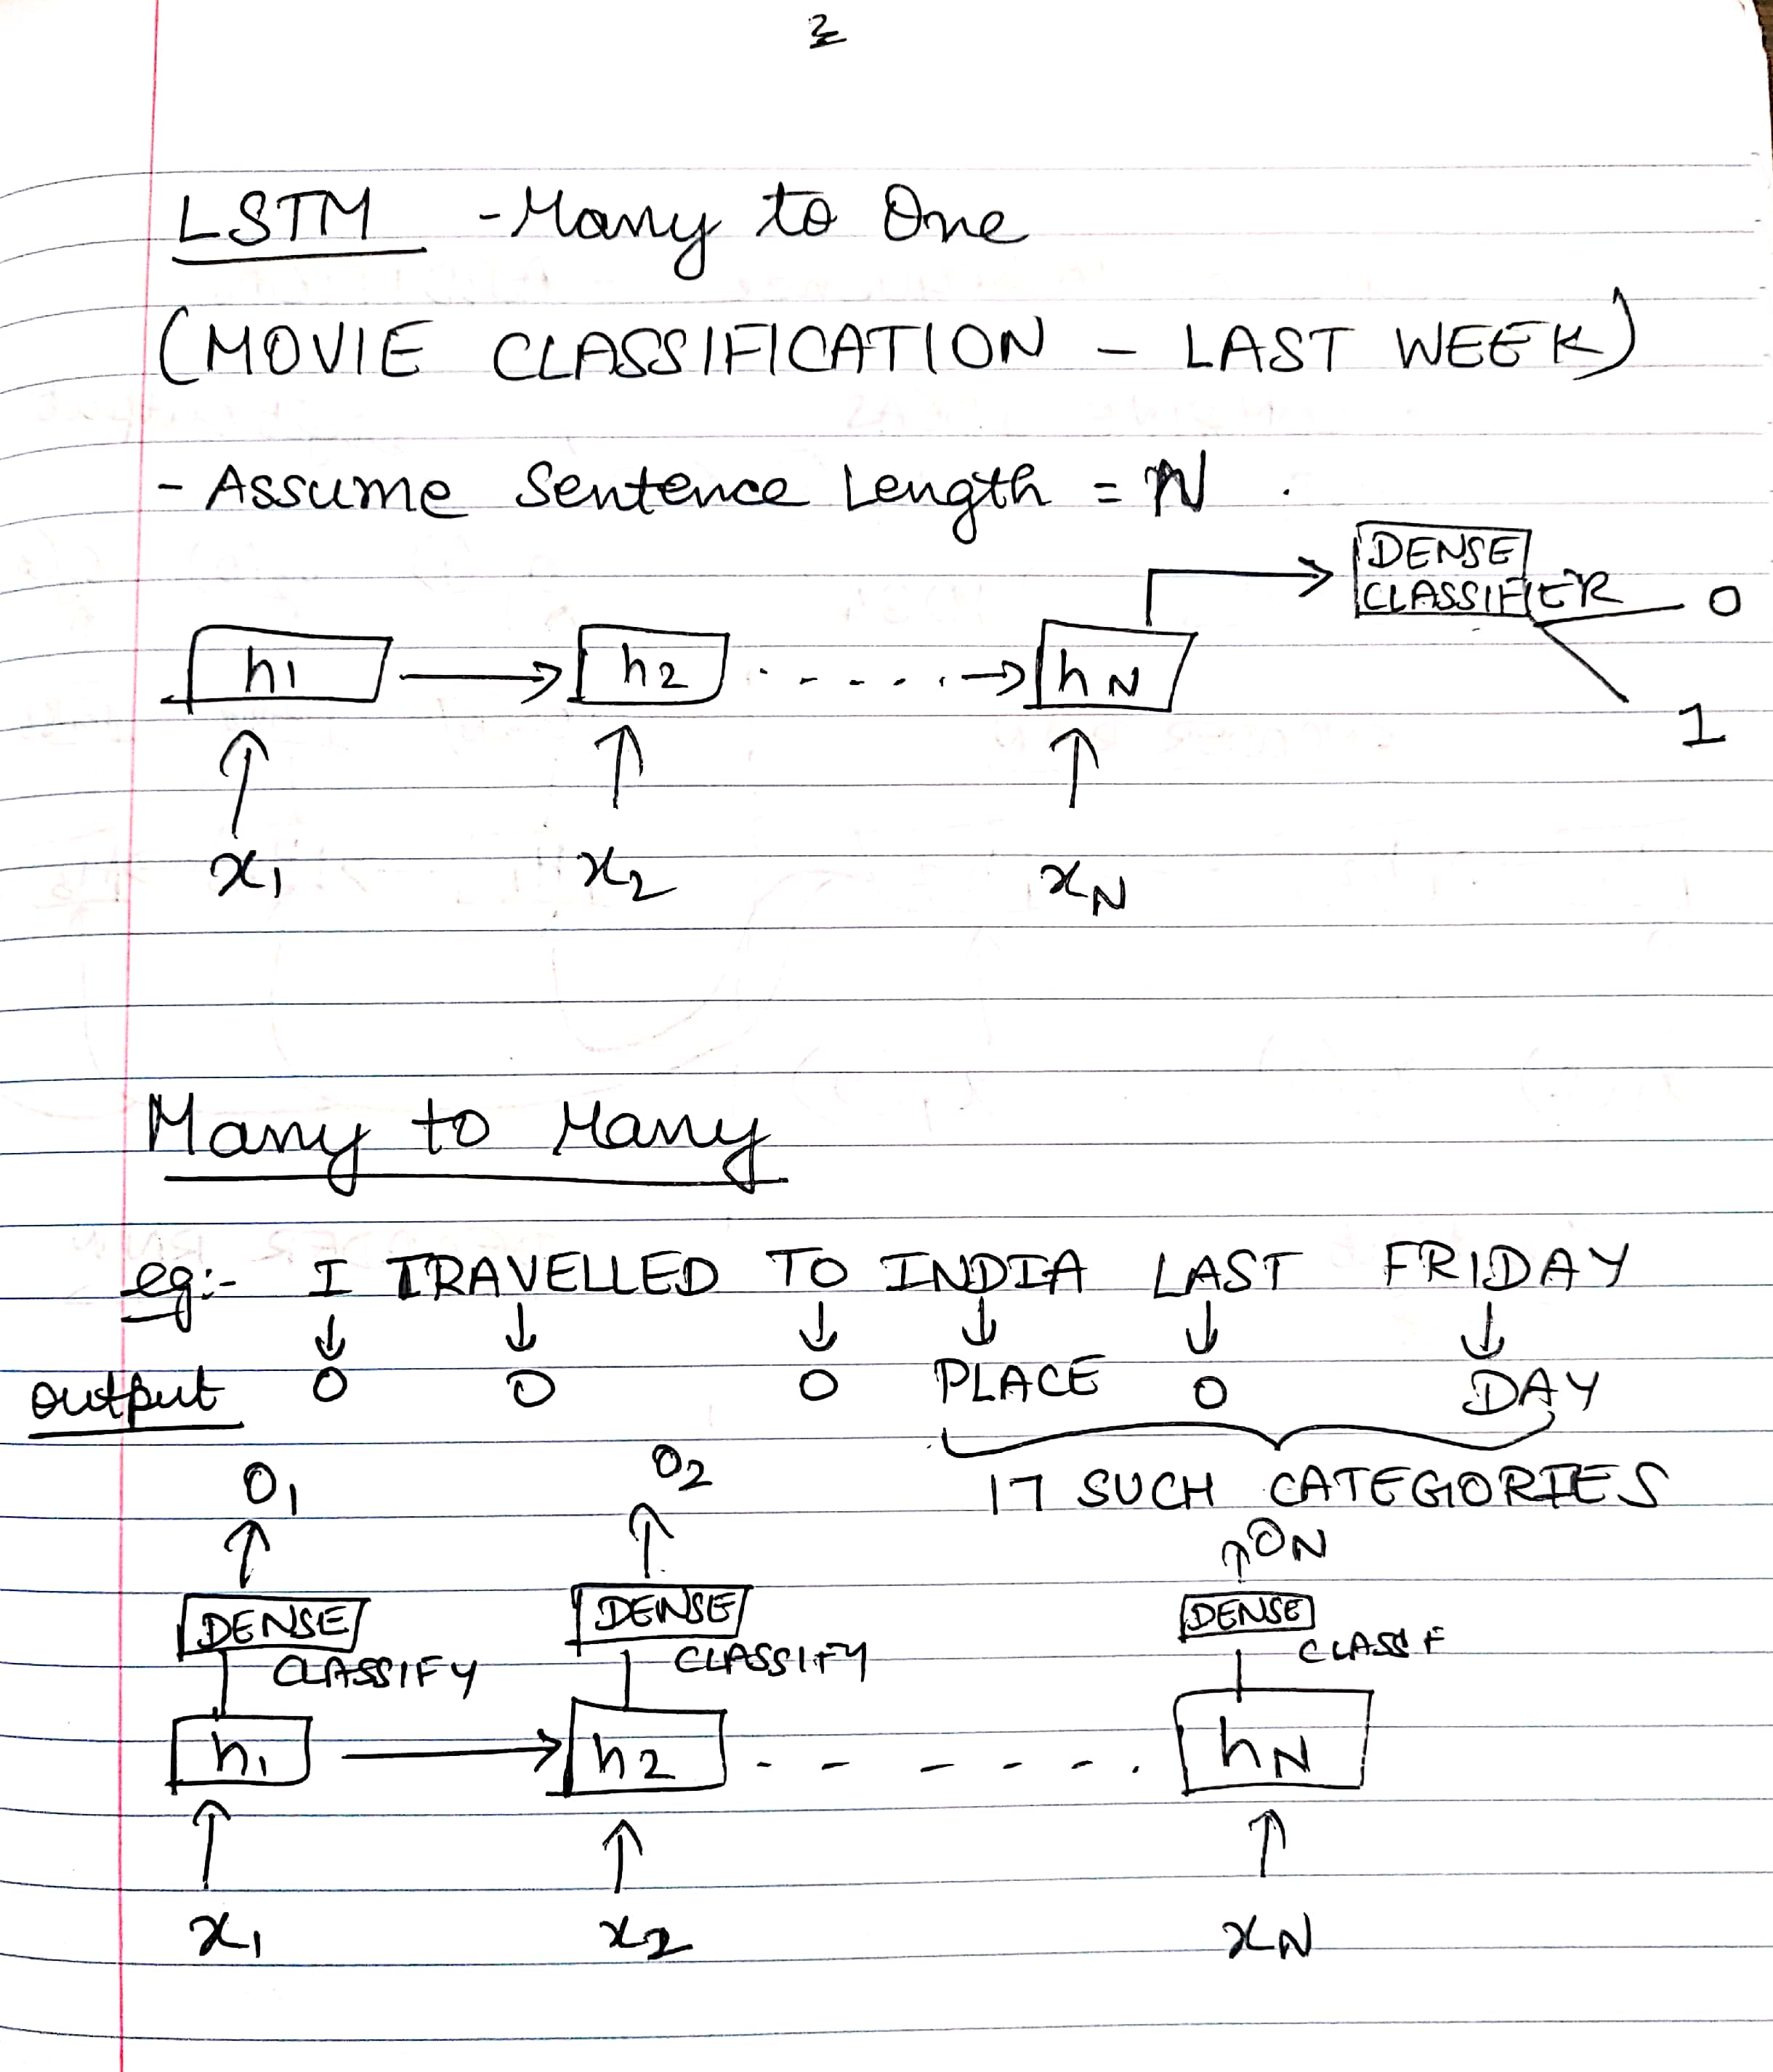 2
LSTM - Many to One
(MOVIE CLASSIFICATION - LAST WEEK)
- Assume Sentence Length = N.
DENSE
CLASSIFIER 0
h1 h2 hN
1
x1 x2 xN
Many to Many
eg:- I TRAVELLED TO INDIA LAST FRIDAY
output O O O PLACE O DAY
O1 O2 17 SUCH CATEGORIES
ON
DENSE DENSE DENSE
CLASSIFY CLASSIFY CLASSF
h1 h2 hN
x1 x2 xN